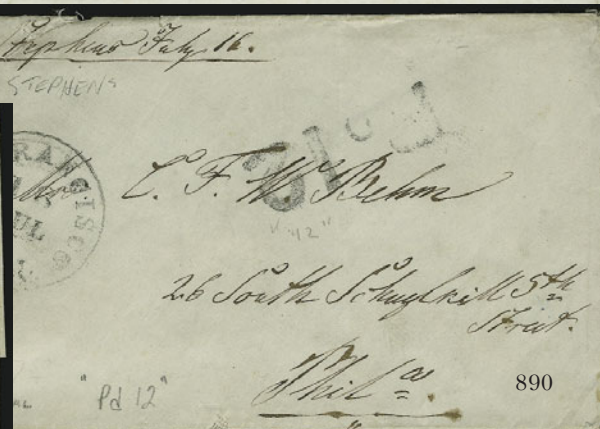 Stephens July 16.
STEPHENS
RANCISCO
JUL
Pd 12
C. F. W. Behm
"12"
26 South Schuylkill 5th
Street.
Phil a.
"Pd 12"
890